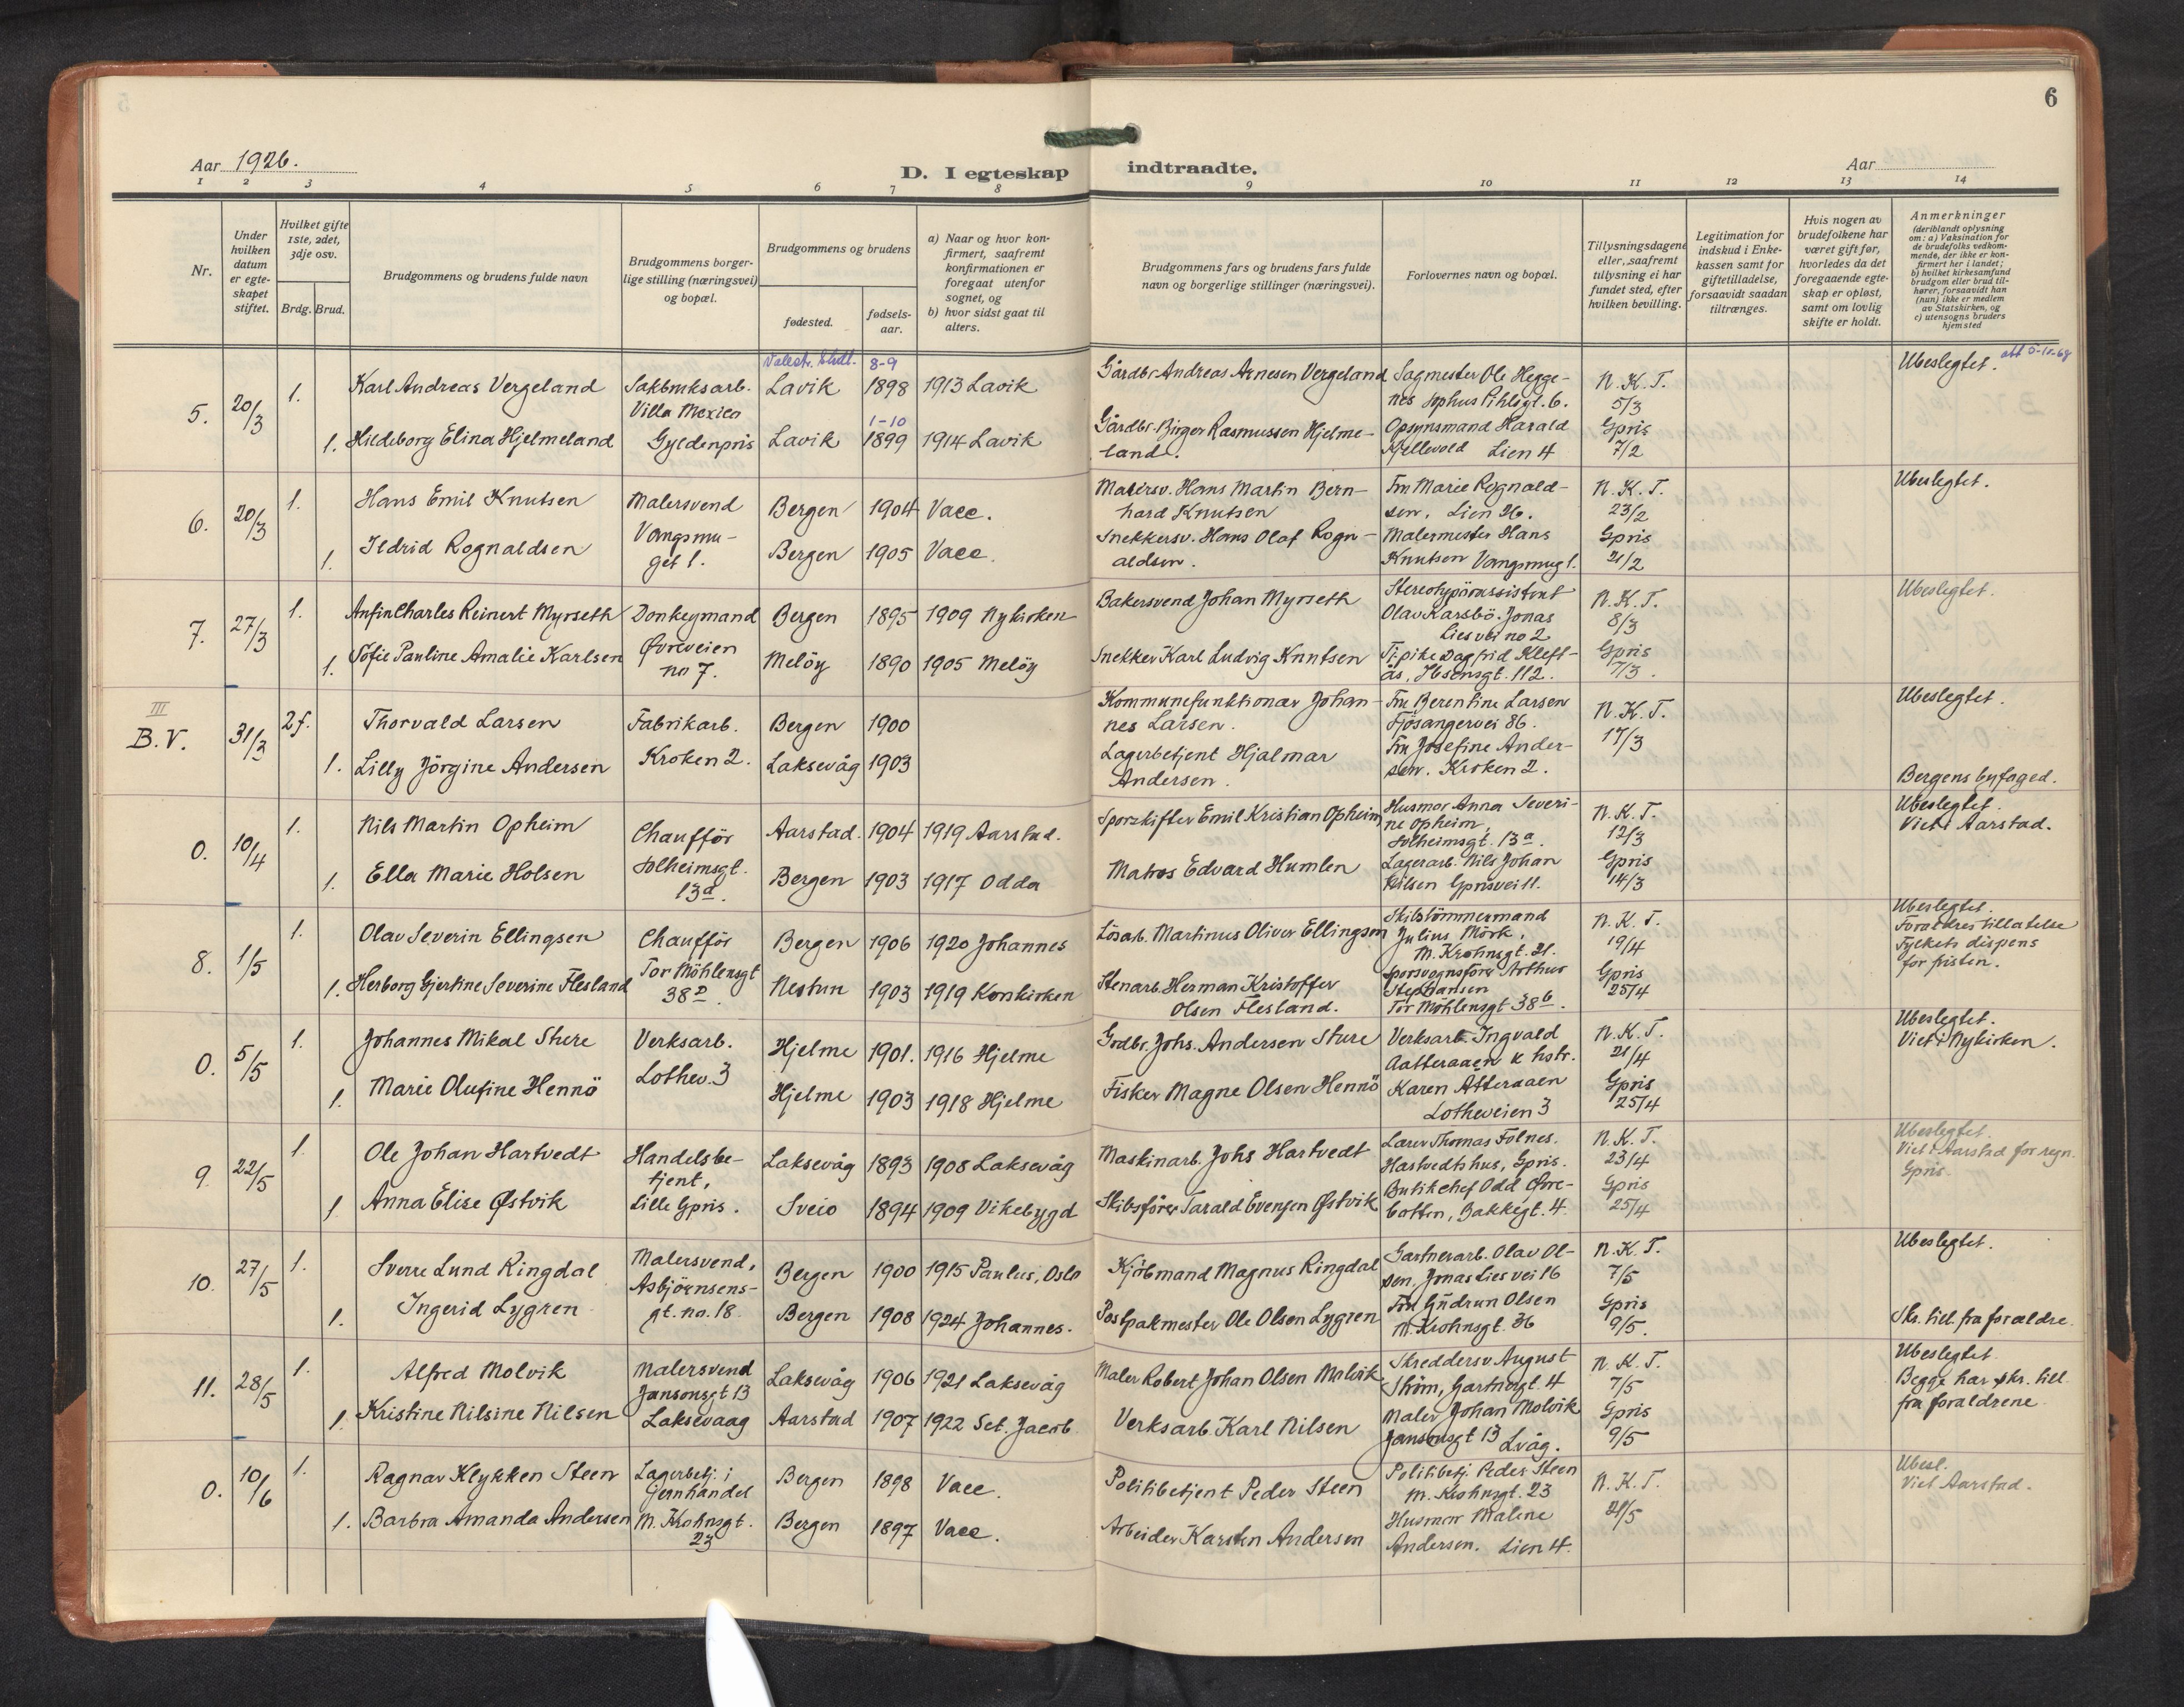 6
Aar 1926.
D. I egteskap indtraadte.
Aar
1 2 3 4 5 6 7 8 9 10 11 12 13 14
Nr.
Under
hvilken
datum
er egte-
skapet
stiftet.
Hvilket gifte
1ste, 2det,
3dje osv.
Brdg. Brud.
Brudgommens og brudens fulde navn
Brudgommens borger-
lige stilling (næringsvei)
og bopæl.
Brudgommens og brudens
fødested.
fødsels-
aar.
a) Naar og hvor kon-
firmert, saafremt
konfirmationen er
foregaat utenfor
sognet, og
b) hvor sidst gaat til
alters.
Brudgommens fars og brudens fars fulde
navn og borgerlige stillinger (næringsvei).
Forlovernes navn og bopæl.
Tillysningsdagene
eller, saafremt
tillysning ei har
fundet sted, efter
hvilken bevilling.
Legitimation for
indskud i Enke-
kassen samt for
giftetilladelse,
forsaavidt saadan
tiltrænges.
Hvis nogen av
brudefolkene har
været gift før,
hvorledes da det
foregaaende egte-
skap er opløst,
samt om lovlig
skifte er holdt.
Anmerkninger
(deriblandt oplysning
om: a) Vaksination for
de brudefolks vedkom-
mende, der ikke er kon-
firmert her i landet;
b) hvilket kirkesamfund
brudgom eller brud til-
hører, forsaavidt han
(hun) ikke er medlem
av Statskirken, og
c) utensogns bruders
hjemsted
5. 20/3
1. Karl Andreas Vergeland
1. Hildeborg Elina Hjelmeland
Sakbruksarb.
Villa Mexico
Gyldenpris
8-9
Lavik 1898 1913 Lavik
1-10
Lavik 1899 1914 Lavik
Gårdbr. Andreas Arnesen Vergeland
Gårdbr. Birger Rasmussen Hjelme-
land.
Sagmester Ole Hegge-
nes Sophus Pihlsgt. 6.
Opsynsmand Harald
Kjellevold Lien 4
N. K. T.
5/3
Gpris
7/2
Ubeslegtet. att 5-10-68
6. 20/3
1. Hans Emil Knutsen
1. Ildrid Rognaldsen
Malersvend
Vongsmu-
get 1.
Bergen 1904 Vacc.
Bergen 1905 Vacc.
Malersv. Hans Martin Bern-
hard Knutsen
Snekkersv. Hans Olaf Rogn-
aldsen.
Fru Marie Rognald-
sen, Lien 26.
Malermester Hans
Knutsen Vongsmug 1.
N. K. T.
23/2
Gpris
21/2
Ubeslegtet.
7. 27/3
1. Anfin Charles Reinert Myrseth
1. Sofie Pauline Amalie Karlsen
Donkeymand
Øvreveien
no 7.
Bergen 1895 1909 Nykirken
Meløy 1890 1905 Meløy
Bakersvend Johan Myrseth
Snekker Karl Ludvig Knutsen
Stereotypörassistent
Olav Karsbö. Jonas
Liesvei no 2
Tj.pike Dagfrid Kleft-
ås, Ibsensgt. 112.
N. K. T.
8/3
Gpris
7/3.
Ubeslegtet.
III
B. V. 31/3
2f. Thorvald Larsen
1. Lilly Jörgine Andersen
Fabrikarb.
Kroken 2.
Bergen 1900
Laksevåg 1903
Kommunefunktionær Johan-
nes Larsen.
Lagerbetjent Hjalmar
Andersen.
Fru Berentine Larsen
Fjösangervei 86.
Fru Josefine Ander-
sen. Kroken 2.
N. K. T.
17/3
Ubeslegtet.
Bergens byfoged.
0. 10/4
1. Nils Martin Opheim
1. Ella Marie Holsen
Chaufför
Solheimsgt.
13a.
Aarstad. 1904 1919 Aarstad.
Bergen 1903 1917 Odda
Sporskifter Emil Kristian Opheim
Matros Edvard Humlen
Husmor Anna Severi-
ne Opheim,
Solheimsgt. 13a.
Lagerarb. Nils Johan
Nilsen Gprisvei 11.
N. K. T.
12/3
Gpris
14/3
Ubeslegtet.
Viet i Aarstad.
8. 1/5
1. Olav Severin Ellingsen
1. Herborg Gjertine Severine Flesland
Chaufför
Tor Möhlensgt
38D.
Bergen 1906 1920 Johannes
Nestun 1903 1919 Korskirken
Lösarb. Martinus Oliver Ellingsen
Stenarb. Herman Kristoffer
Olsen Flesland.
Skibstömmermand
Julius Mörk,
M. Krohnsgt. 21.
Sporvognsfører Arthur
Stephansen
Tor Möhlensgt 38b.
N. K. T.
19/4
Gpris
25/4
Ubeslegtet.
Forældres tillatelse
Fylkets dispens
for fristen.
0. 5/5
1. Johannes Mikal Sture
1. Marie Olufine Hennö
Verksarb.
Lothev. 3
Hjelme 1901. 1916 Hjelme
Hjelme 1903 1918 Hjelme
Grdbr. Johs. Andersen Sture
Fisker Magne Olsen Hennö
Verksarb. Ingvald
Aatteraaen & hstr.
Karen Atteraaen
Lotheveien 3
N. K. T.
21/4
Gpris
25/4
Ubeslegtet.
Viet i Nykirken.
9. 22/5
1. Ole Johan Hartvedt
1. Anna Elise Østvik
Handelsbe-
tjent,
Lille Gpris.
Laksevåg 1893 1908 Laksevåg
Sveio 1894 1909 Vikebygd
Maskinarb. Johs Hartvedt
Skibsfører Tarald Evensen Østvik
Lærer Thomas Folnes.
Hastvedtshus, Gpris.
Butikchef Odd Øvre-
botten, Bakkegt. 4.
N. K. T.
23/4
Gpris
25/4
Ubeslegtet.
Viet i Aarstad for regn.
Gpris.
10. 27/5
1. Sverre Lund Ringdal
1. Ingerid Lygren
Malersvend,
Asbjörnsens-
gt. no. 18.
Bergen 1900 1915 Paulus, Oslo
Bergen 1908 1924 Johannes.
Kjöbmand Magnus Ringdal
Postpakmester Ole Olsen Lygren
Gartnerarb. Olav Ol-
sen, Jonas Lies vei 16
Fru Gudrun Olsen
M. Krohnsgt. 36
N. K. T.
7/5
Gpris
9/5.
Ubeslegtet.
Skr. till. fra forældre.
11. 28/5
1. Alfred Molvik
1. Kristine Nilsine Nilsen
Malersvend
Jansonsgt 13
Laksevaag
Laksevåg 1906 1921 Laksevåg
Aarstad 1907 1922 Sct. Jacob
Maler Robert Johan Olsen Molvik
Verksarb. Karl Nilsen
Skreddersv August
Ström, Gartnergt. 4
Maler Johan Molvik
Jansonsgt 13 Lvåg.
N. K. T.
7/5
Gpris
9/5
Ubeslegtet.
Begge har skr. till.
fra forældrene
0. 10/6
1. Ragnar Klykken Steen
1. Barbra Amanda Andersen
Lagerbetj. i
jernhandel
M. Krohnsgt.
23
Bergen 1898 Vacc.
Bergen 1897 Vacc.
Politibetjent Peder Steen
Arbeider Karsten Andersen
Politibetj. Peder Steen
M. Krohnsgt. 23
Husmor Maline
Andersen. Lien 4.
N. K. T.
21/5
Ubesl.
Viet Aarstad.